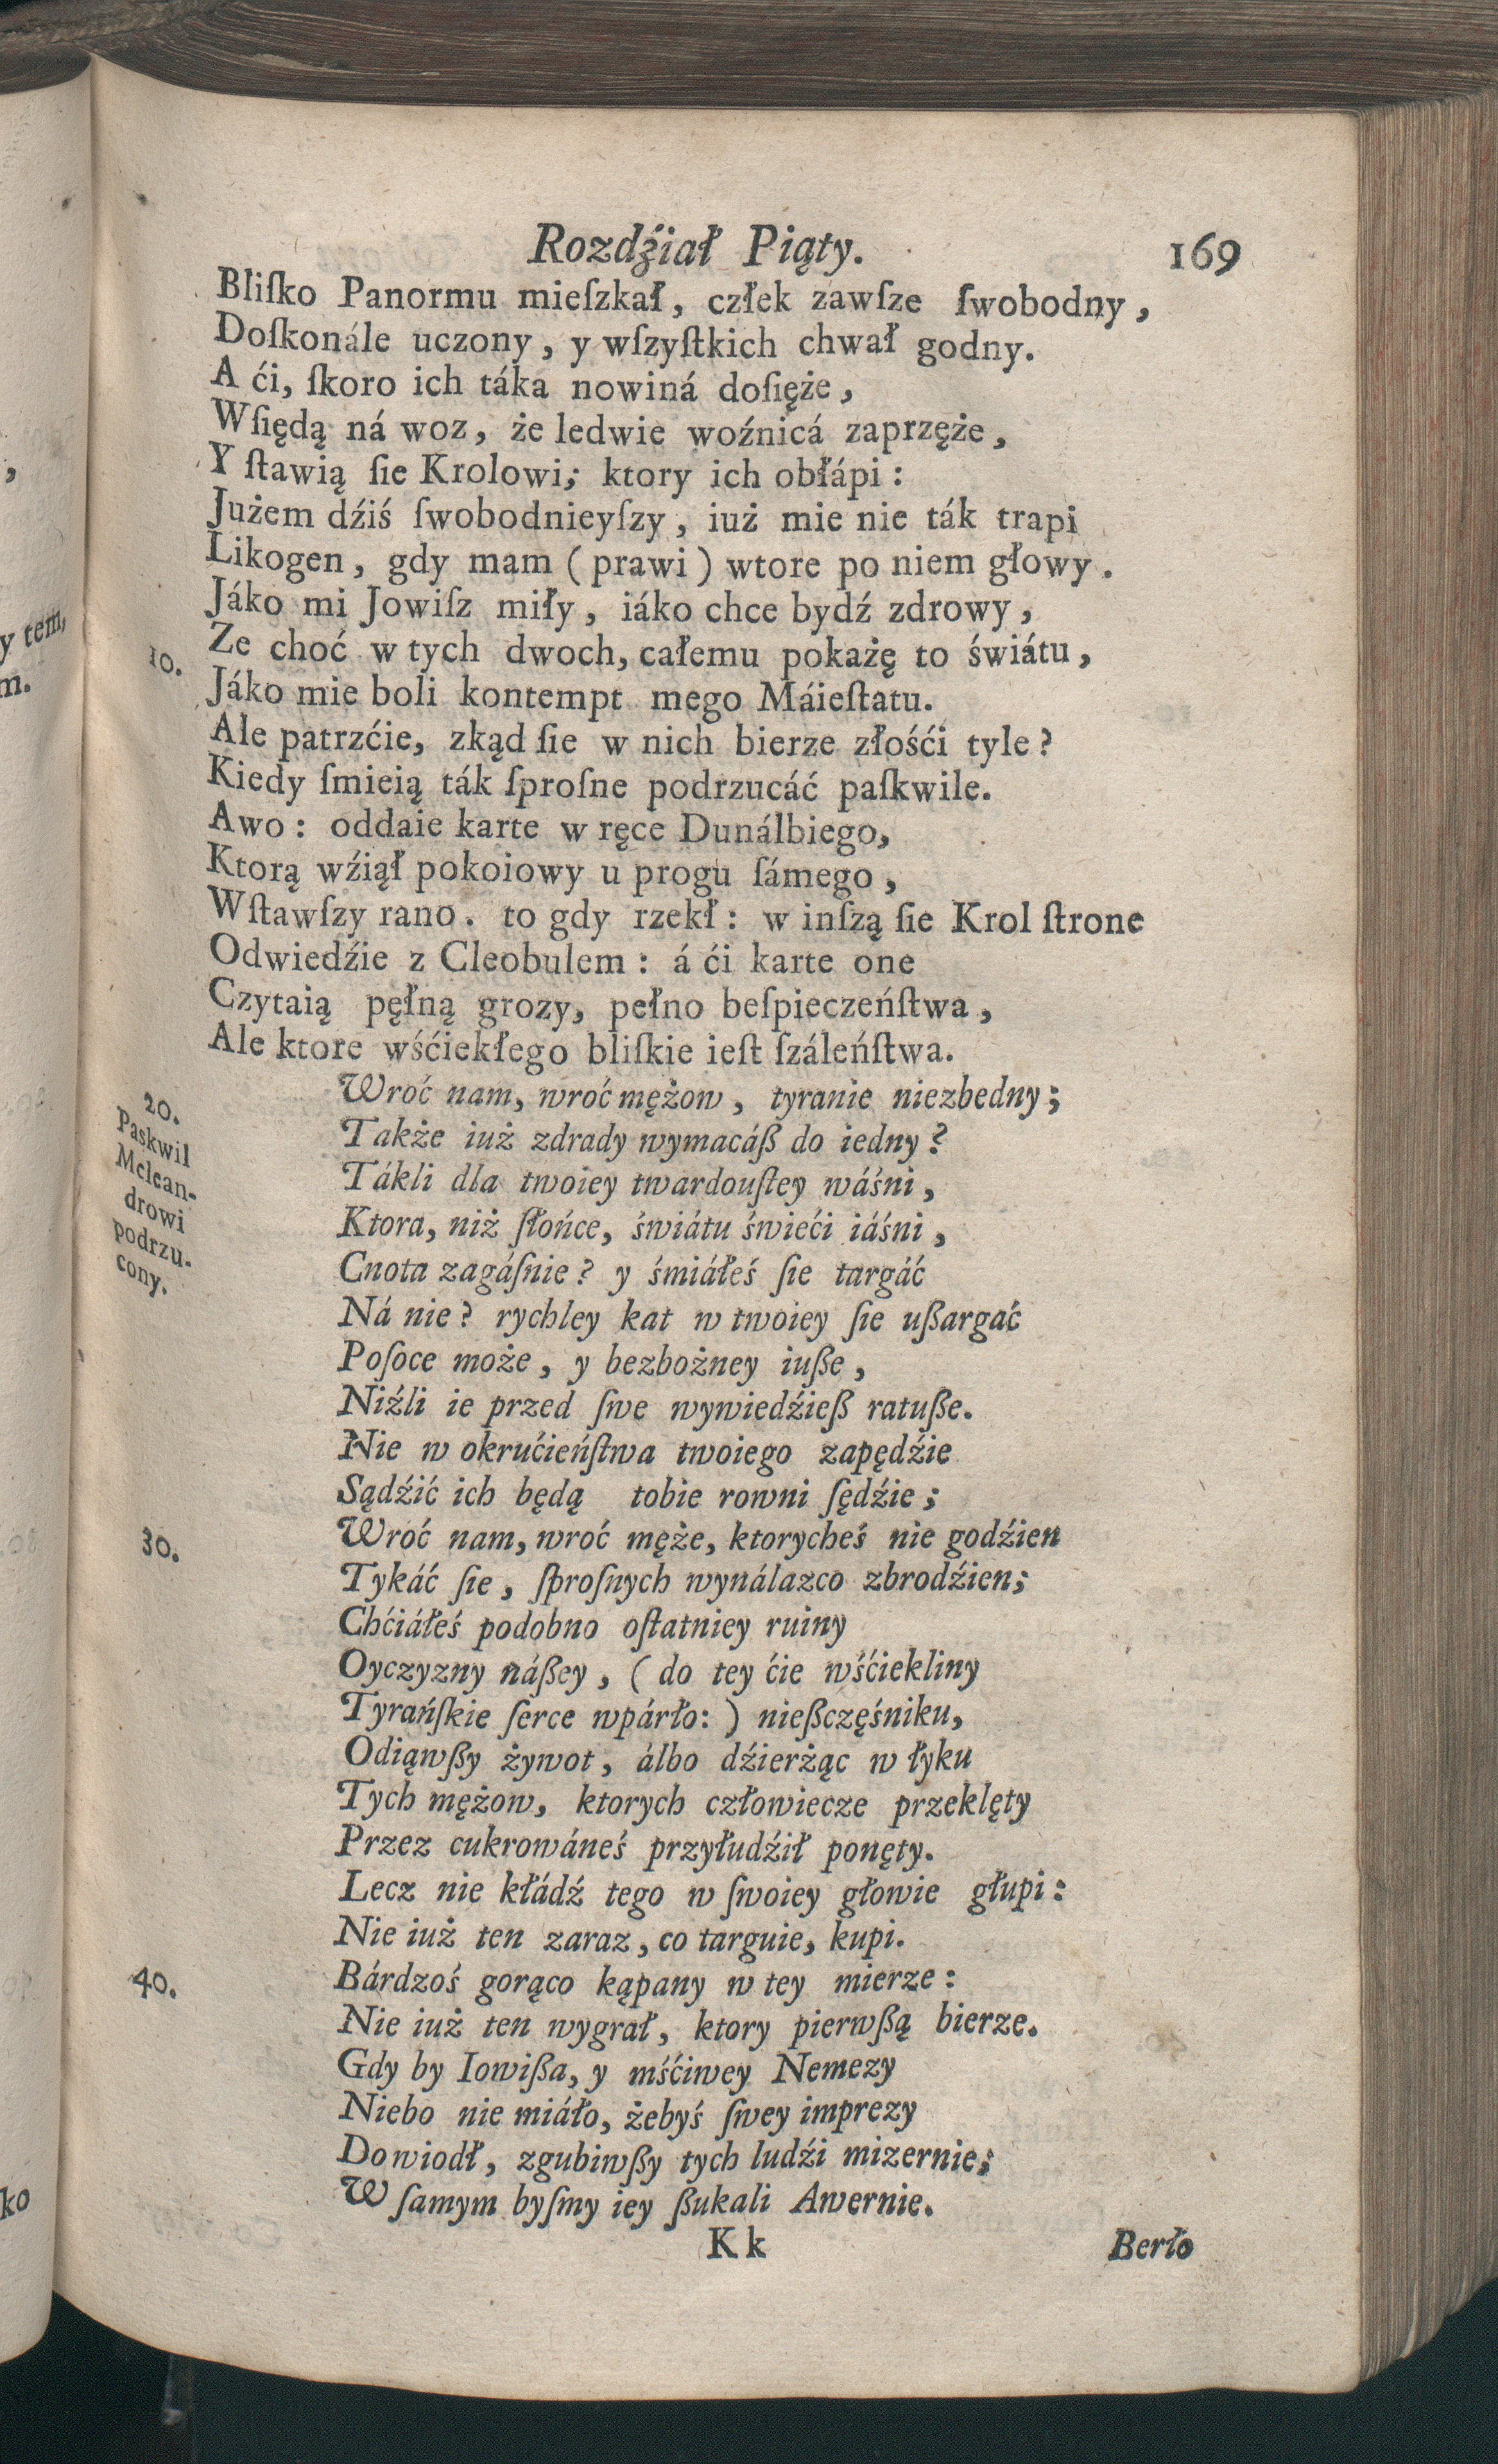 Rozdźiał Piąty. 169
Bliſko Panormu mieſzkał, człek zawſze ſwobodny,
Doſkonále uczony, y wſzyſtkich chwał godny.
A ći, ſkoro ich táka nowiná dosięże,
Wſiędą ná woz, że ledwie woźnicá zaprzęże,
Y ſtawią ſie Krolowi; ktory ich obłápi:
Jużem dźiś ſwobodnieyſzy, iuż mie nie ták trapi
Likogen, gdy mam (prawi) wtore po niem głowy.
Jáko mi Jowiſz miły, iáko chce bydź zdrowy,
Ze choć w tych dwoch, całemu pokażę to świátu,
10. Jáko mie boli kontempt mego Máieſtatu.
Ale patrzćie, zkąd ſie w nich bierze złośći tyle?
Kiedy ſmieią ták ſproſne podrzucáć paſkwile.
Awo: oddaie karte w ręce Dunálbiego,
Ktorą wźiął pokoiowy u progu ſámego,
Wſtawſzy rano. to gdy rzekł: w inſzą ſie Krol ſtrone
Odwiedźie z Cleobulem: á ći karte one
Czytaią pęłną grozy, pełno beſpieczeńſtwa,
Ale ktore wśćiekłego bliſkie ieſt ſzáleńſtwa.
Wroć nam, wroć mężow, tyranie niezbedny;
20. Także iuż zdrady wymacáß do iedny?
Paskwil Melean-
drowi
podrzu-
cony.
Tákli dla twoiey twardouſtey wáśni,
Ktora, niż ſłońce, świátu świeći iáśni,
Cnota zagáſnie? y śmiáłeś ſie targáć
Ná nie? rychley kat w twoiey ſie ußargać
Poſoce może, y bezbożney iuße,
Niźli ie przed ſwe wywiedźieß ratuße.
Nie w okrućieńſtwa twoiego zapędźie
Sądźić ich będą tobie rowni ſędźie;
30. Wroć nam, wroć męże, ktorycheś nie godźien
Tykáć ſie, ſproſnych wynálazco zbrodźien;
Chćiáłeś podobno oſtatniey ruiny
Oyczyzny náßey, (do tey ćie wśćiekliny
Tyrańſkie ſerce wpárło:) nießczęśniku,
Odiąwßy żywot, álbo dźierżąc w łyku
Tych mężow, ktorych człowiecze przeklęty
Przez cukrowáneś przyłudźił ponęty.
Lecz nie kłádź tego w ſwoiey głowie głupi:
Nie iuż ten zaraz, co targuie, kupi.
40. Bárdzoś gorąco kąpany w tey mierze:
Nie iuż ten wygrał, ktory pierwßą bierze.
Gdy by Iowißa, y mśćiwey Nemezy
Niebo nie miáło, żebyś ſwey imprezy
Dowiodł, zgubiwßy tych ludźi mizernie;
W ſamym byſmy iey ßukali Awernie.
K k Berło
y tem,
m.
ko